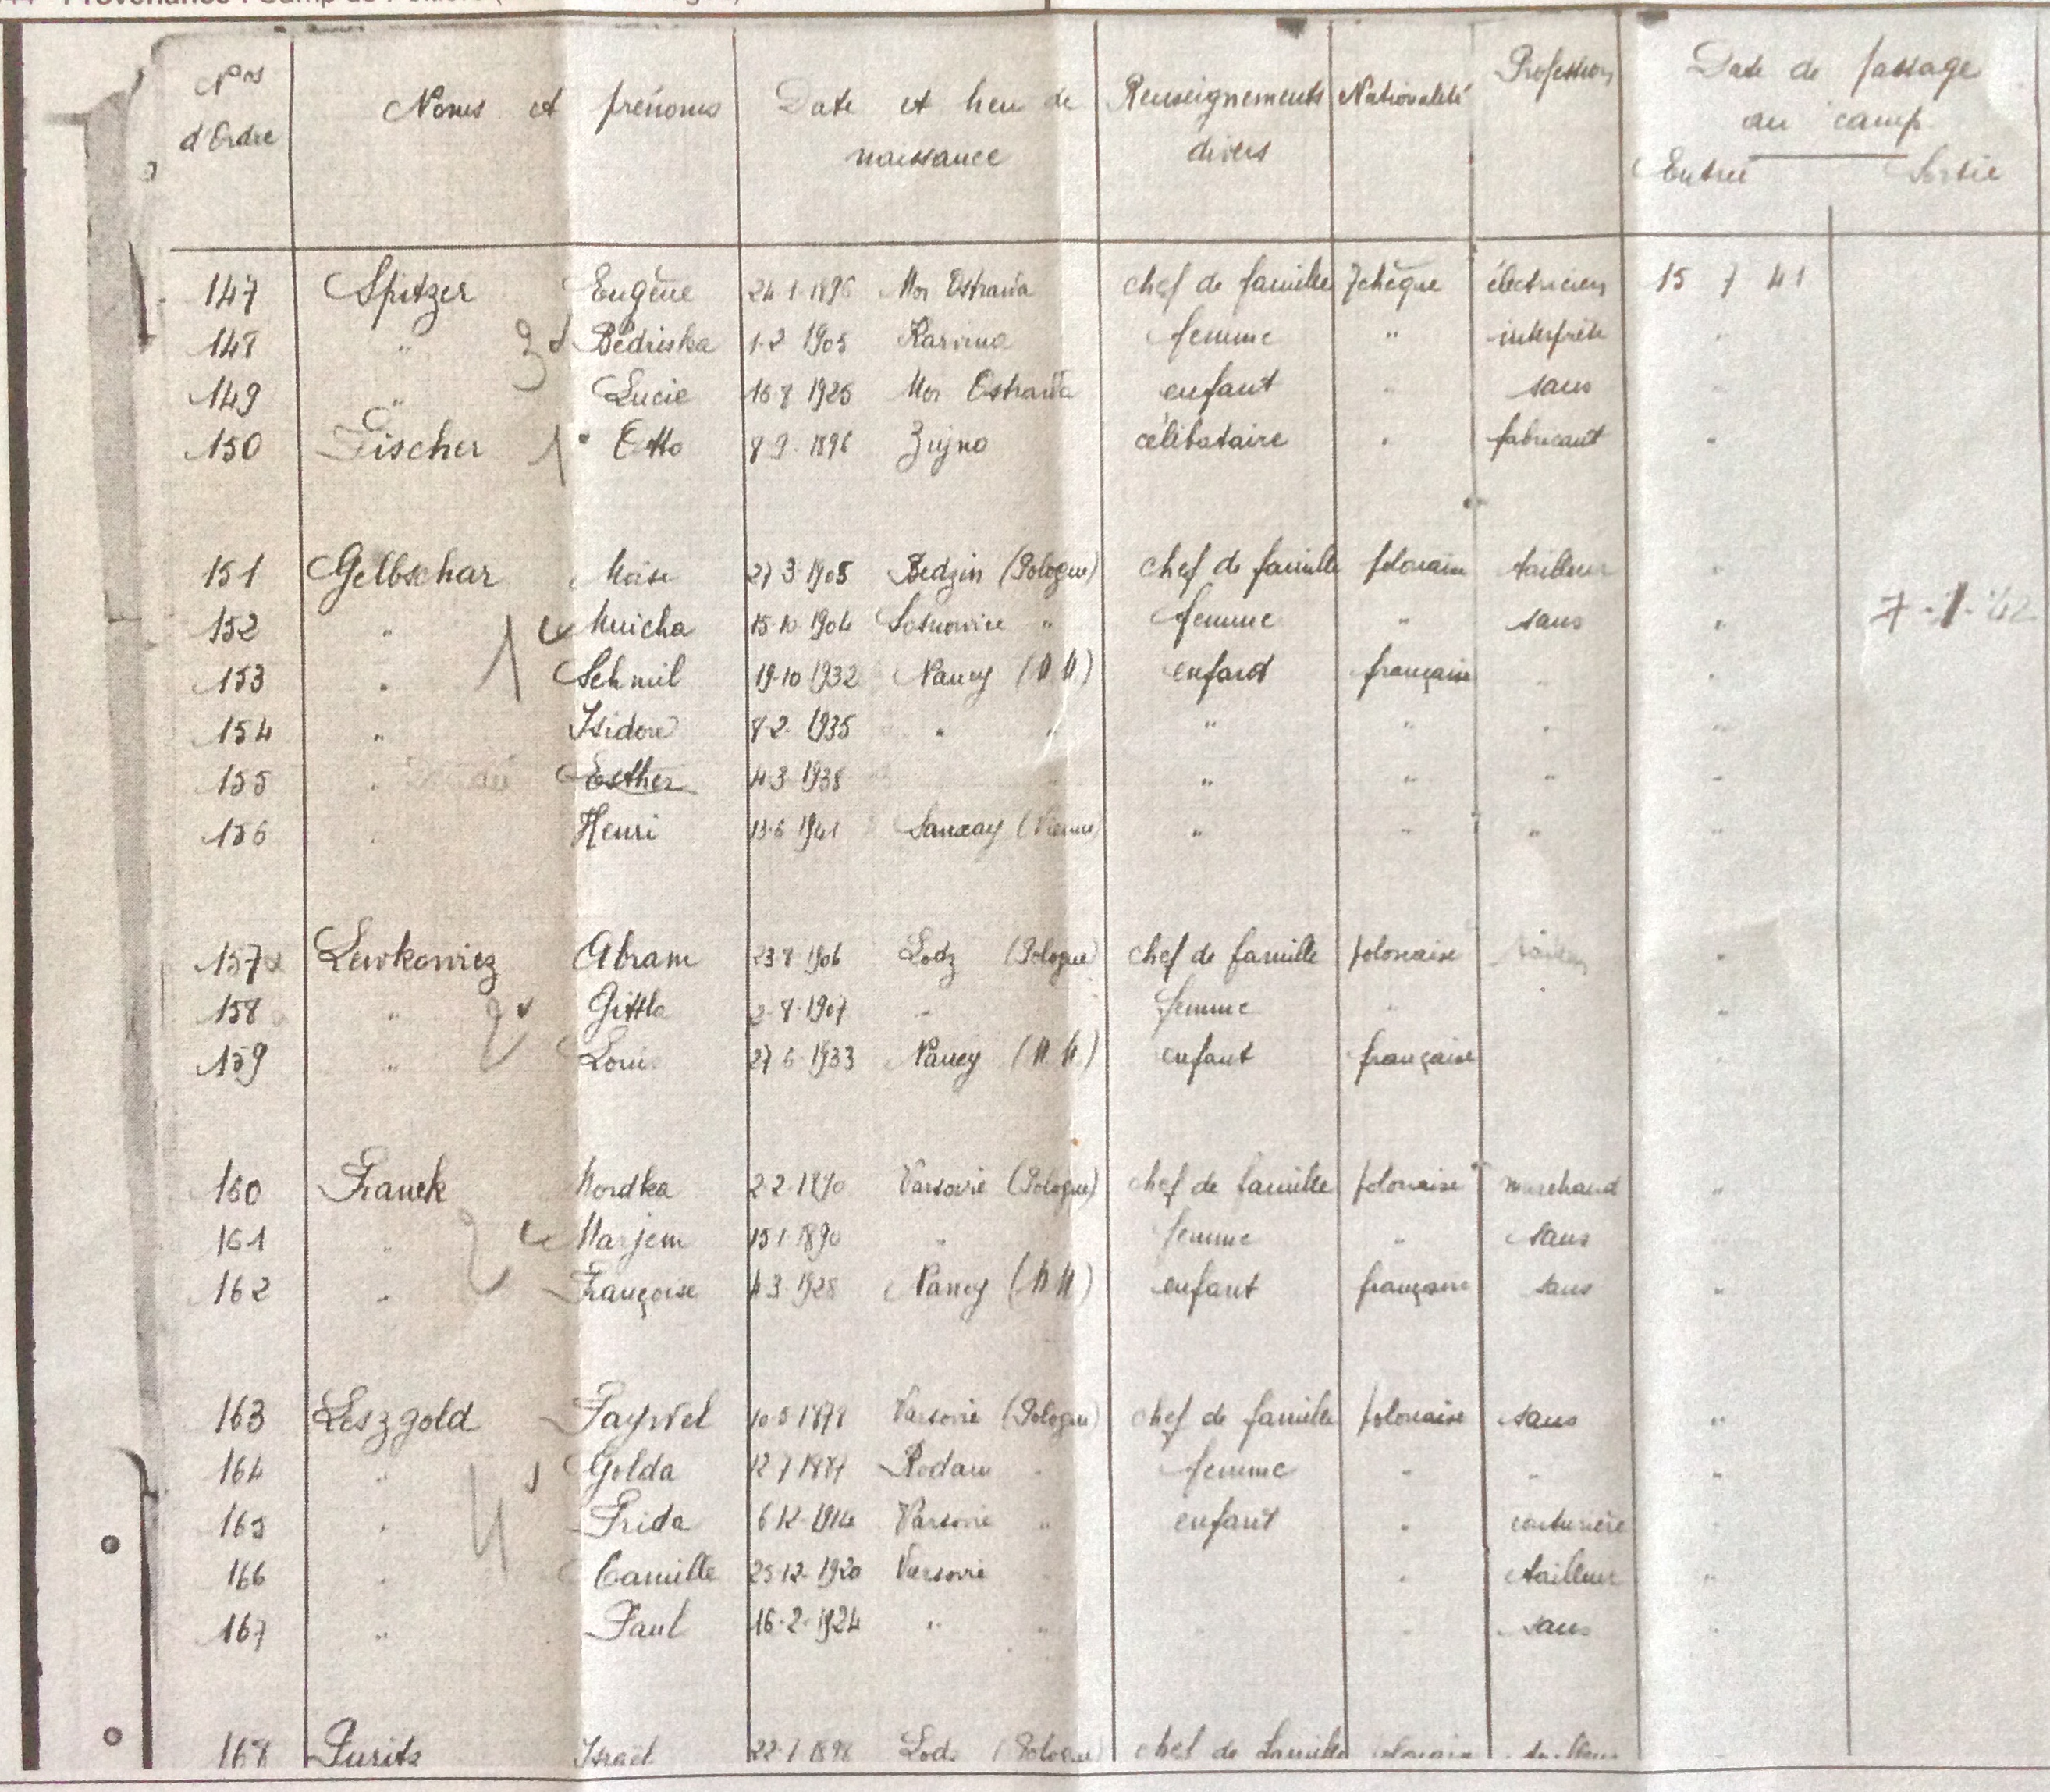 Nos d'Ordre Noms et prénoms Date et lieu de naissance Renseignements divers Nationalité Profession Date de passage au camp Entrée Sortie
147 Spitzer Eugène 24-1-1896 Mor Ostrava chef de famille Tchèque électricien 15 7 41
148 " Bedriska 1-2 1905 Karvina femme " interprète "
149 " Lucie 1925 Mor Ostrava enfant " sans "
150 Fischer 1 Otto 8 9-1896 célibataire " fabricant "
151 Gelbschar Moïse 27 3-1905 Bedzin (Pologne) chef de famille polonais tailleur "
152 " 1 15-10-1904 Sosnowice " femme " sans " 7-1-42
153 " Schmil 19-10-1932 Nancy (M.M.) enfant français " "
154 " Isidore 8-2-1935 " " " " " "
155 " Esther 4-3-1938 " " " " "
156 " Henri 13-6-1941 Sanxay (Vienne) " " " "
157 Lewkowicz Abram 23 8-1906 Lodz (Pologne) chef de famille polonaise "
158 " 2 Gittla 2-8-1907 " femme " "
159 " Louis 27 6-1933 Nancy (M.M.) enfant française "
160 Franck Mordka 2-2-1890 Varsovie (Pologne) chef de famille polonaise marchand "
161 " 2 Marjem 15-1-1890 " femme " sans
162 " Françoise 4-3-1928 Nancy (M.M.) enfant française sans "
163 Leszgold Fayvel 10-5-1878 Varsovie (Pologne) chef de famille polonaise sans "
164 " Golda 12-7-1887 " femme " " "
165 " 4 Frida 6-12-1914 Varsovie " enfant " couturière "
166 " Camille 25-12-1920 Varsovie " tailleur "
167 " Paul 16-2-1924 " " " " sans "
168 Israël 22-1-1898 Lodz (Pologne) chef de famille polonais tailleur